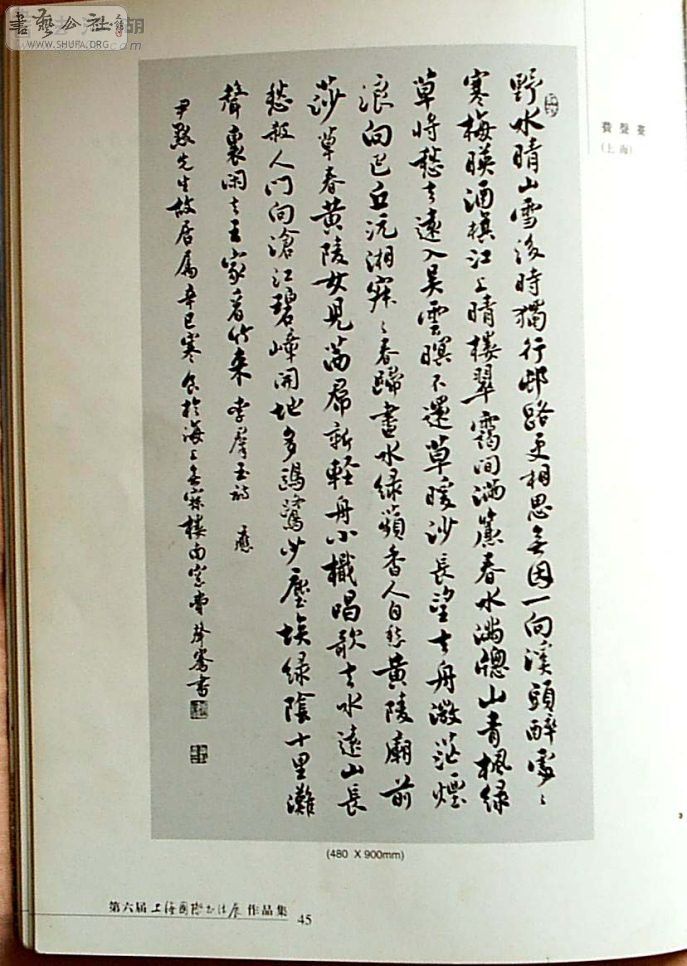 書藝公社
WWW.SHUFA.ORG
胡
.com
費聲騫
(上海)
野水晴山雪後時獨行邨路更相思無因一向溪頭醉處〻
寒梅暎酒旗江上晴樓翠靄間滿簾春水滿牕山青楓綠
草將愁去遠入吳雲暝不還草暖沙長望去舟微茫煙
浪向巴丘沅湘寂〻春歸盡水綠蘋香人自愁黃陵廟前
莎草春黃陵女兒茜帬新輕舟小檝唱歌去水遠山長
愁殺人門向滄江碧嶂開地多鷗鷺少塵埃綠陰十里灘
聲裏閑去王家看竹來 李羣玉詩 應
尹默先生故居屬辛巳寒食於海上無寐樓南窗費聲騫書
(480 X 900mm)
第六屆上海國際書法展作品集
45